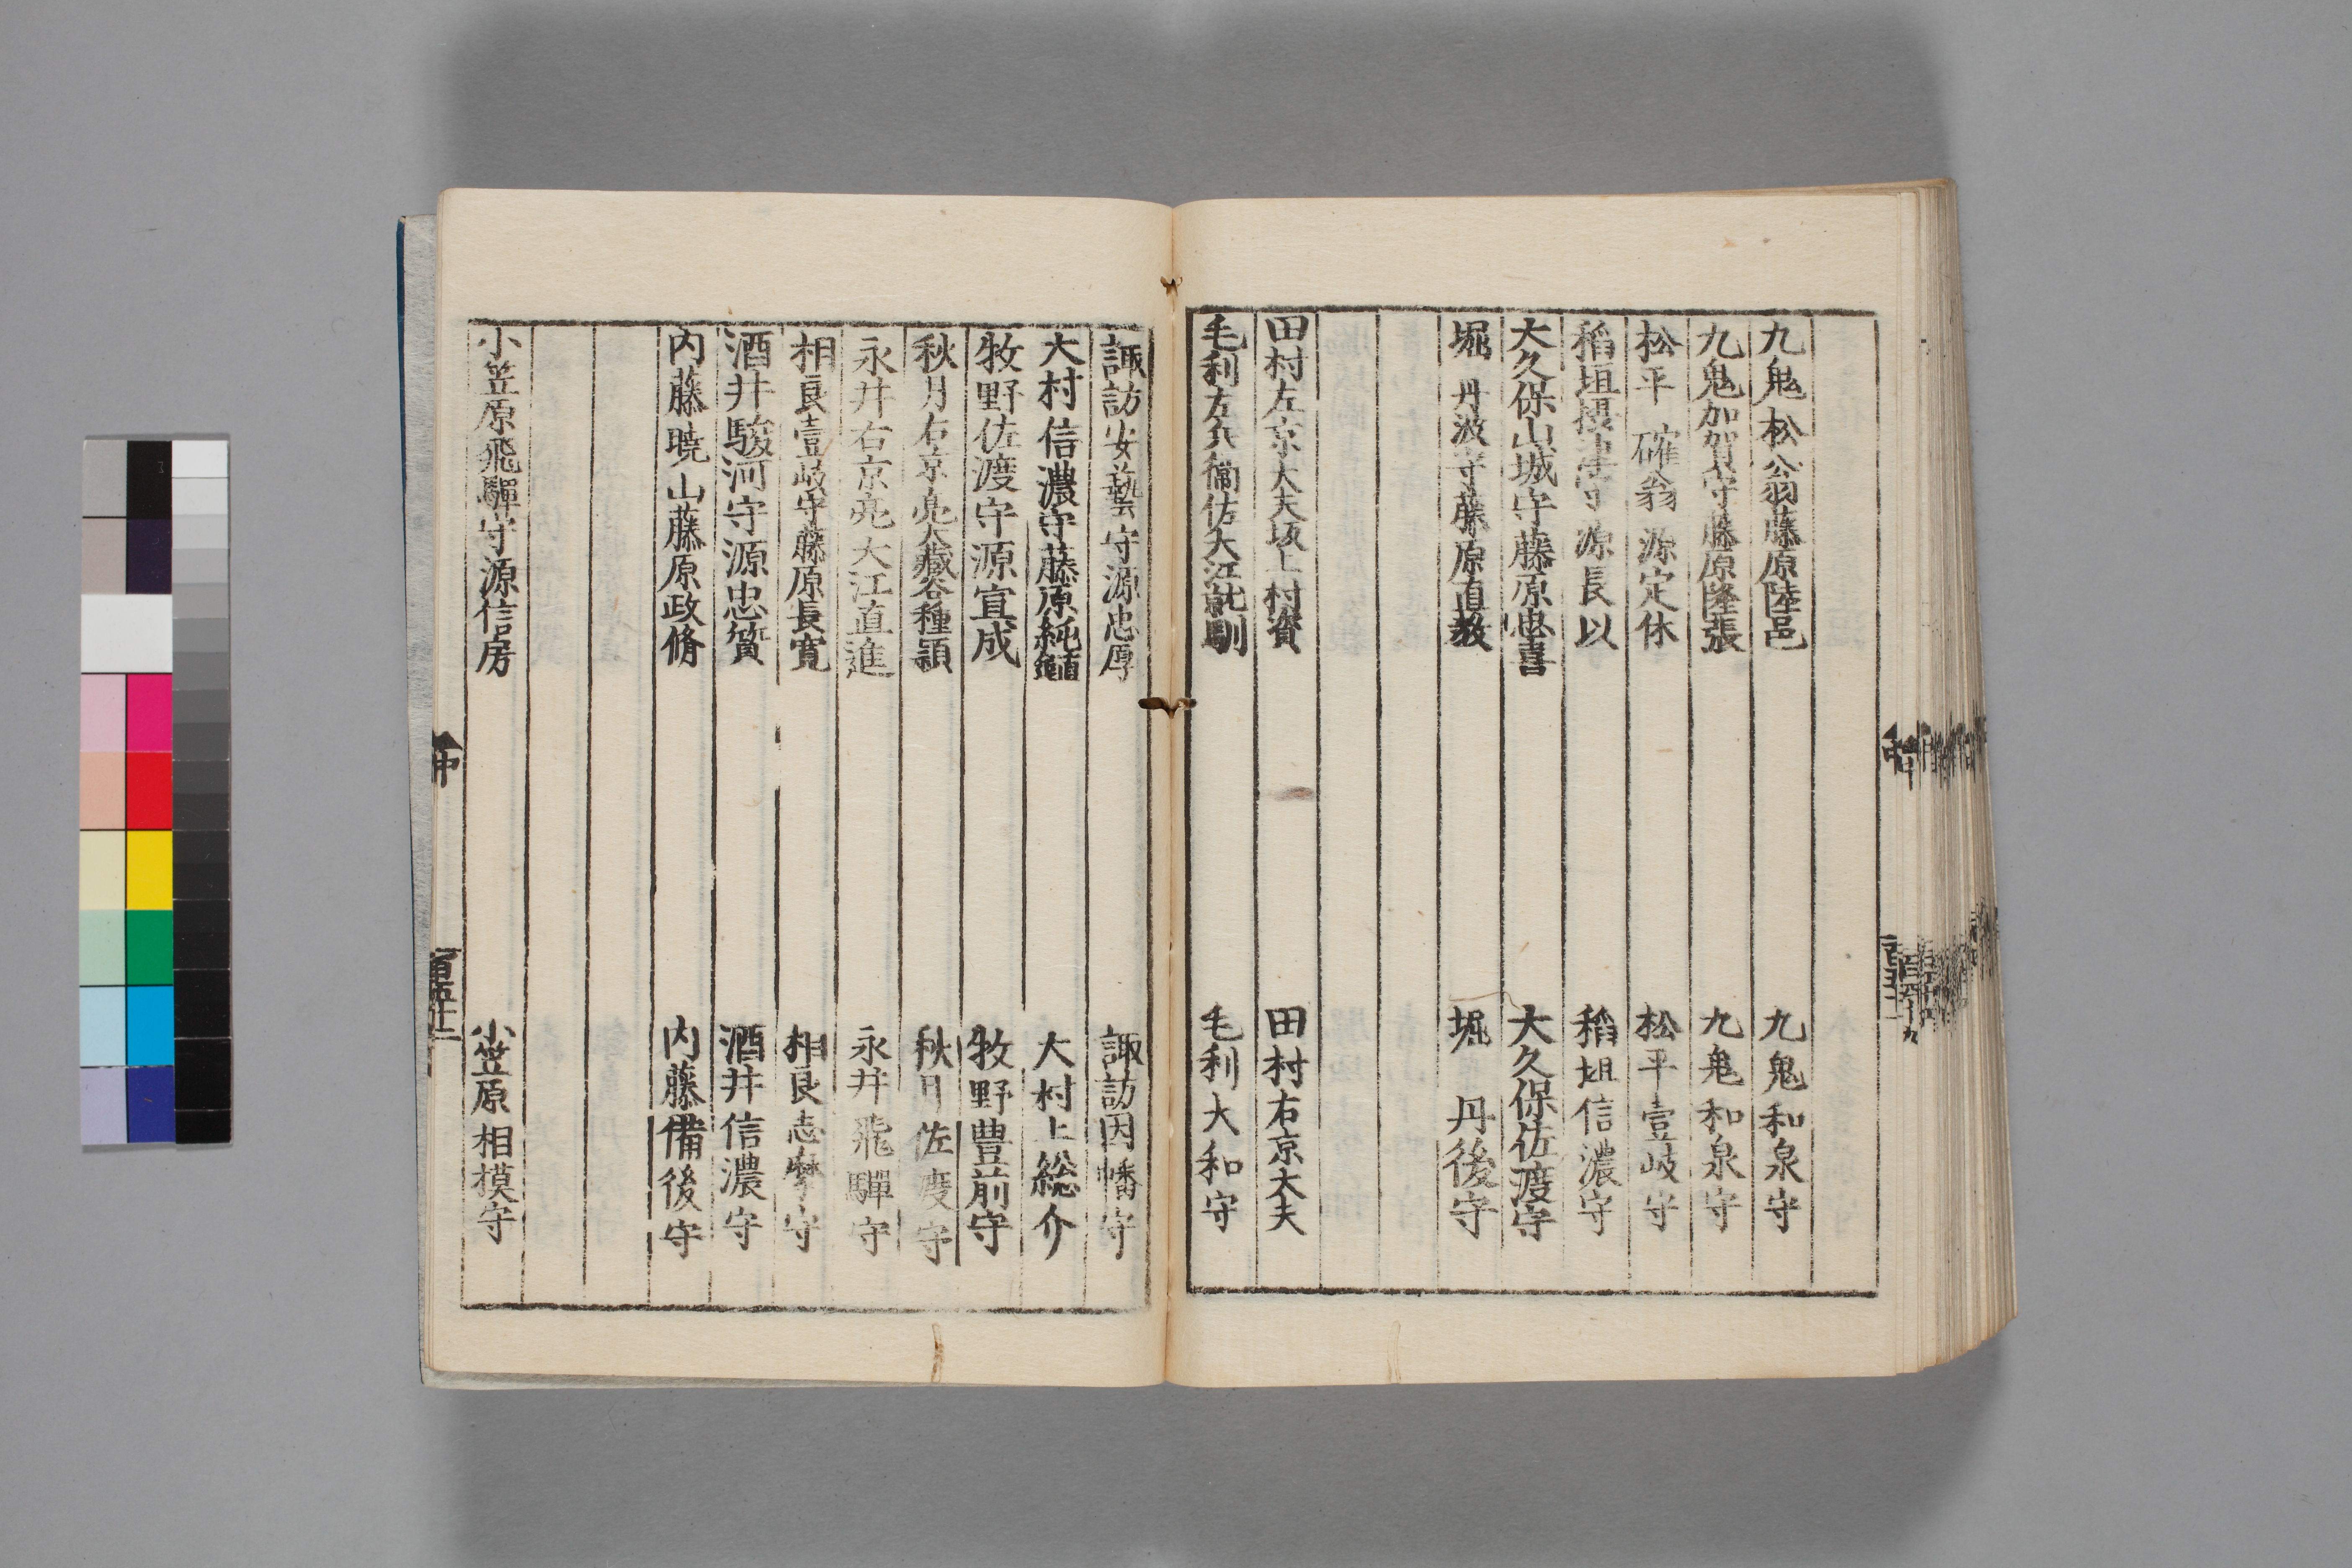 九鬼松翁藤原隆邑　九鬼和泉守
九鬼加賀守藤原隆張　九鬼和泉守
松平確翁源定休　松平壹岐守
稻垣摂津守源長以　稻垣信濃守
大久保山城守藤原忠喜　大久保佐渡守
堀丹波守藤原直教　堀丹後守
田村左京大夫坂上村資　田村右京大夫
毛利左兵衞佐大江就馴　毛利大和守
諏訪安藝守源忠厚　諏訪因幡守
大村信濃守藤原純鎮　大村上総介
牧野佐渡守源宣成　牧野豊前守
秋月右京亮大藏谷種頴　秋月佐渡守
永井右京亮大江直進　永井飛驒守
相良壹岐守藤原長寛　相良志摩守
酒井駿河守源忠質　酒井信濃守
内藤暁山藤原政脩　内藤備後守
小笠原飛驒守源信房　小笠原相摸守